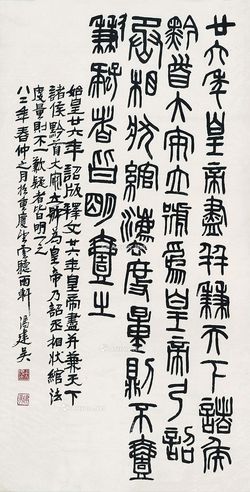 廿六年皇帝盡并兼天下諸侯
黔首大安立號為皇帝乃詔
丞相狀綰灋度量則不壹
歉疑者皆明壹之
始皇廿六年詔版釋文廿六年皇帝盡并兼天下
諸侯黔首大安立號為皇帝乃詔丞相狀綰法
度量則不一歉疑者皆明之
八二年春仲之月於重慶雲聽雨軒 馮建吳